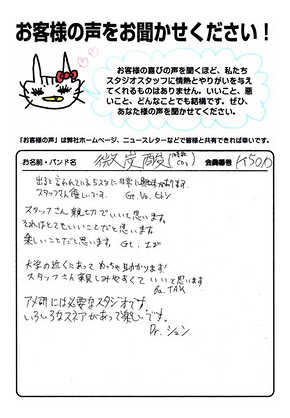 お客様の声をお聞かせください！
お客様の喜びの声を聞くほど、私たち
スタジオスタッフに情熱とやりがいを与え
てくれるものはありません。いいこと、悪
いこと、どんなことでも結構です。ぜひ、
あなた様の声を聞かせてください。
「お客様の声」は弊社ホームページ、ニュースレターなどで皆様と共有できれば幸いです。
お名前・バンド名 微炭酸 会員番号
出ると言われている5スタに非常に興味があります。
スタッフさん優しいです。 Gt. Vo. ヒトシ
スタッフさん親切でいいと思います。
それはとてもいいことだと思います。
楽しいことだと思います。 Gt.
大学の近くにあって めっちゃ助かります!
スタッフさん親しみやすくていいと思います
Ba. TAK
アメ研には必要なスタジオです。
いろいろなスネアがあって楽しいです。
Dr. ション